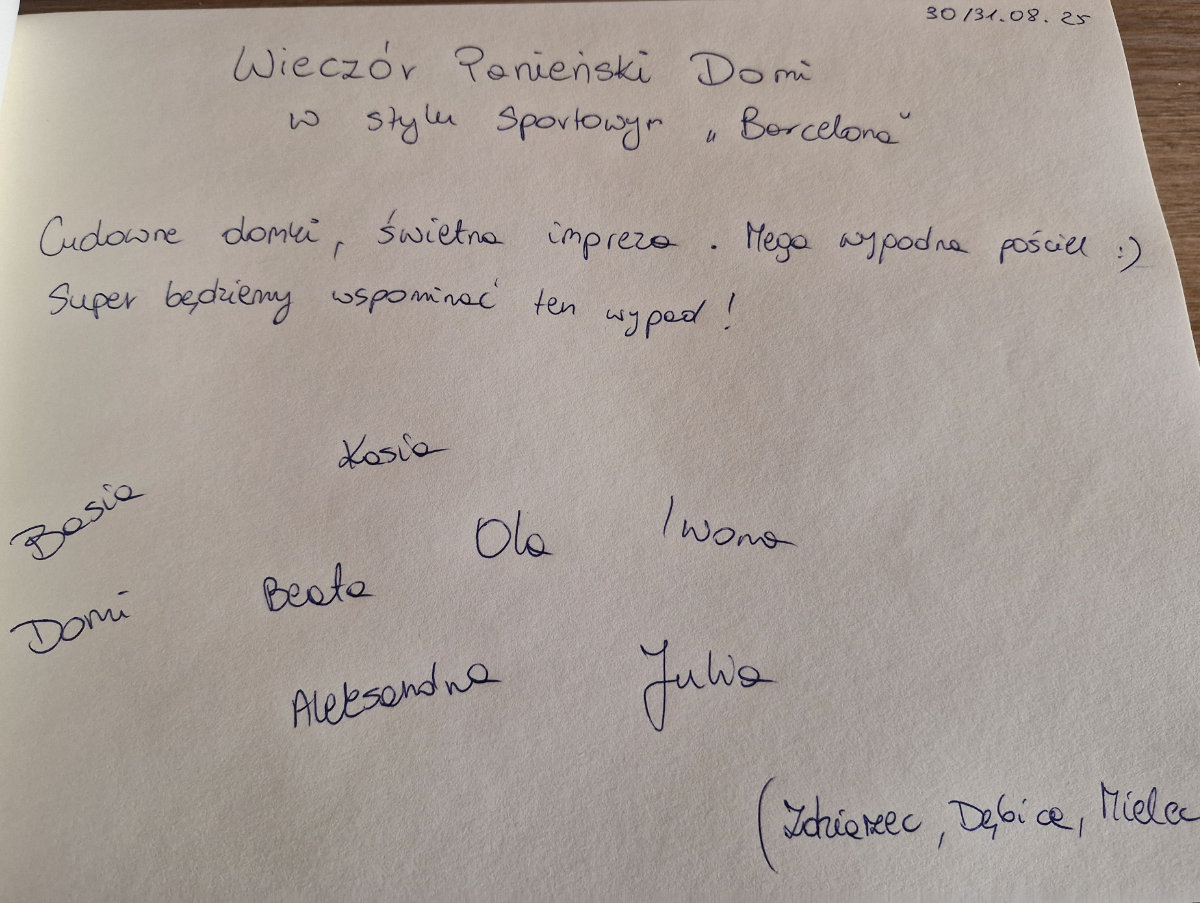 30/31.08.25
Wieczór Panieński Domi
w stylu sportowym „Barcelona"
Cudowne domki, świetna impreza. Mega wypodna pościel :)
Super będziemy wspominać ten wypad!
Kasia
Basia
Ola Iwona
Beata
Domi
Aleksandra Julia
(Zdziarzec, Dębica, Mielec